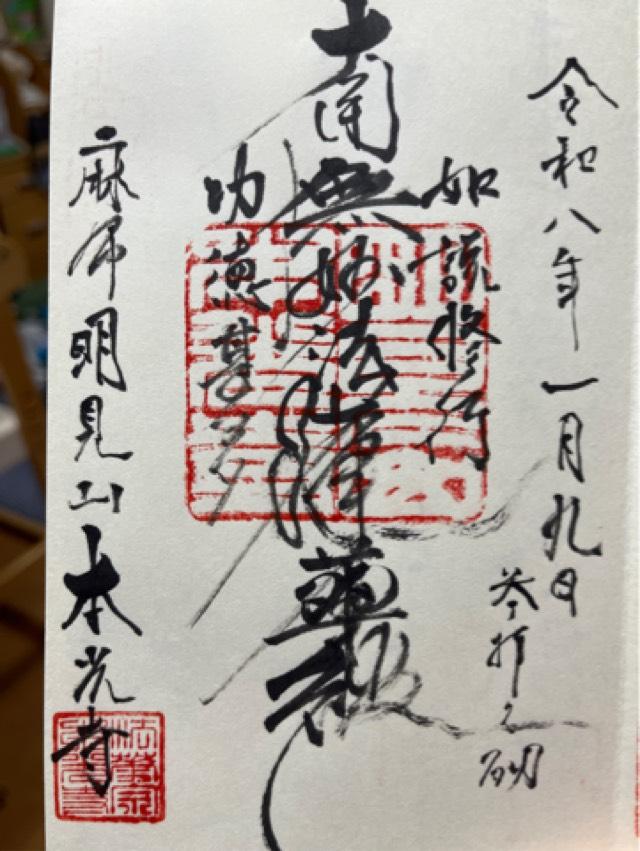 令和八年一月九日
参拝之砌
如説修行
南無妙法蓮華経
功徳甚多
麻布明見山
本光寺